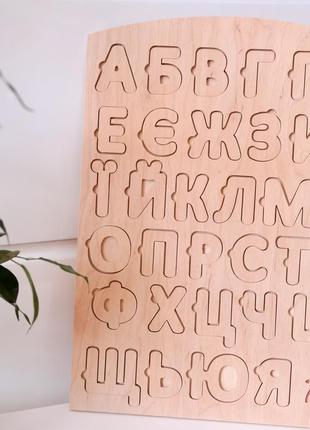 А Б В Г Ґ
Е Є Ж З И
Ї Й К Л М
О П Р С Т
Ф Х Ц Ч Ш
Щ Ь Ю Я